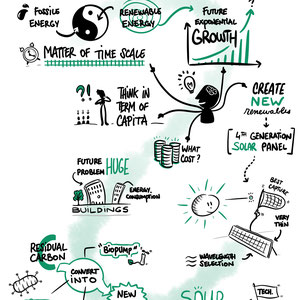 FOSSILE
ENERGY
RENEWABLE
ENERGY
FUTURE
EXPONENTIAL
GROWTH
?
MATTER OF TIME SCALE
?!
THINK IN
TERM OF
CAPITA
CREATE
NEW
renewables
4TH GENERATION
SOLAR PANEL
WHAT
COST?
FUTURE
PROBLEM HUGE
ENERGY
CONSUMPTION
BUILDINGS
BEST
CAPTURE
VERY
THIN
WAVELENGTH
SELECTION
RESIDUAL
CARBON
"BIOPUMP"
CONVERT
INTO
NEW
TECH.